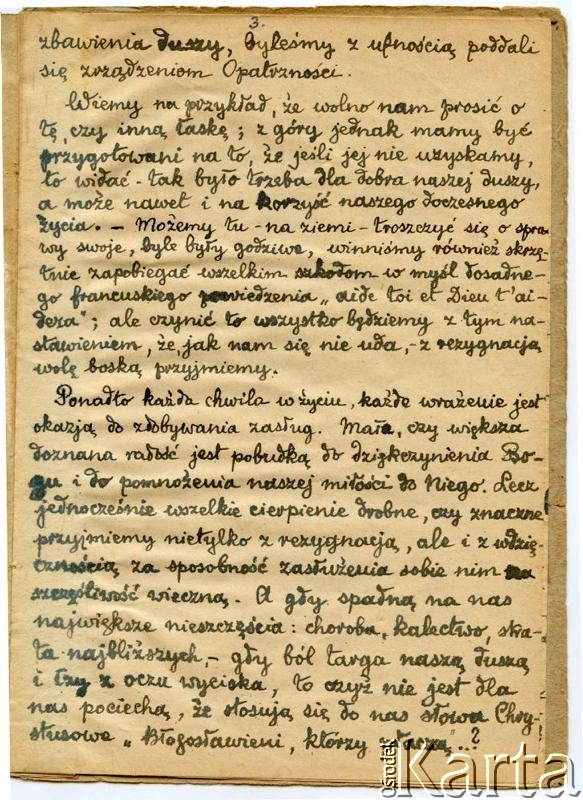 3.
zbawienia duszy, byleśmy z ufnością poddali
się zrządzeniom Opatrzności.
Wiemy na przykład, że wolno nam prosić o
tę, czy inną łaskę; z góry jednak mamy być
przygotowani na to, że jeśli jej nie uzyskamy,
to widać - tak było trzeba dla dobra naszej duszy,
a może nawet i na korzyść naszego doczesnego
życia. — Możemy tu - na ziemi - troszczyć się o spra-
wy swoje, byle były godziwe, winniśmy również skrzę-
tnie zapobiegać wszelkim szkodom w myśl dosadne-
go francuskiego powiedzenia „aide toi et Dieu t'ai-
dera"; ale czynić to wszystko będziemy z tym na-
stawieniem, że, jak nam się nie uda, - z rezygnacją
wolę boską przyjmiemy.
Ponadto każda chwila w życiu, każde wrażenie jest
okazją do zdobywania zasług. Mała, czy większa
doznana radość jest pobudką do dziękczynienia Bo-
gu i do pomnożenia naszej miłości do Niego. Lecz
jednocześnie wszelkie cierpienie drobne, czy znaczne
przyjmiemy nietylko z rezygnacją, ale i z wdzię-
cznością za sposobność zasłużenia sobie nim na
szczęśliwość wieczną. A gdy spadną na nas
największe nieszczęścia: choroba, kalectwo, stra-
ta najbliższych, - gdy ból targa naszą duszą
i łzy z oczu wyciska, to czyż nie jest dla
nas pociechą, że stosują się do nas słowa Chry-
stusowe „Błogosławieni, którzy płaczą"..?
ośrodek
Karta